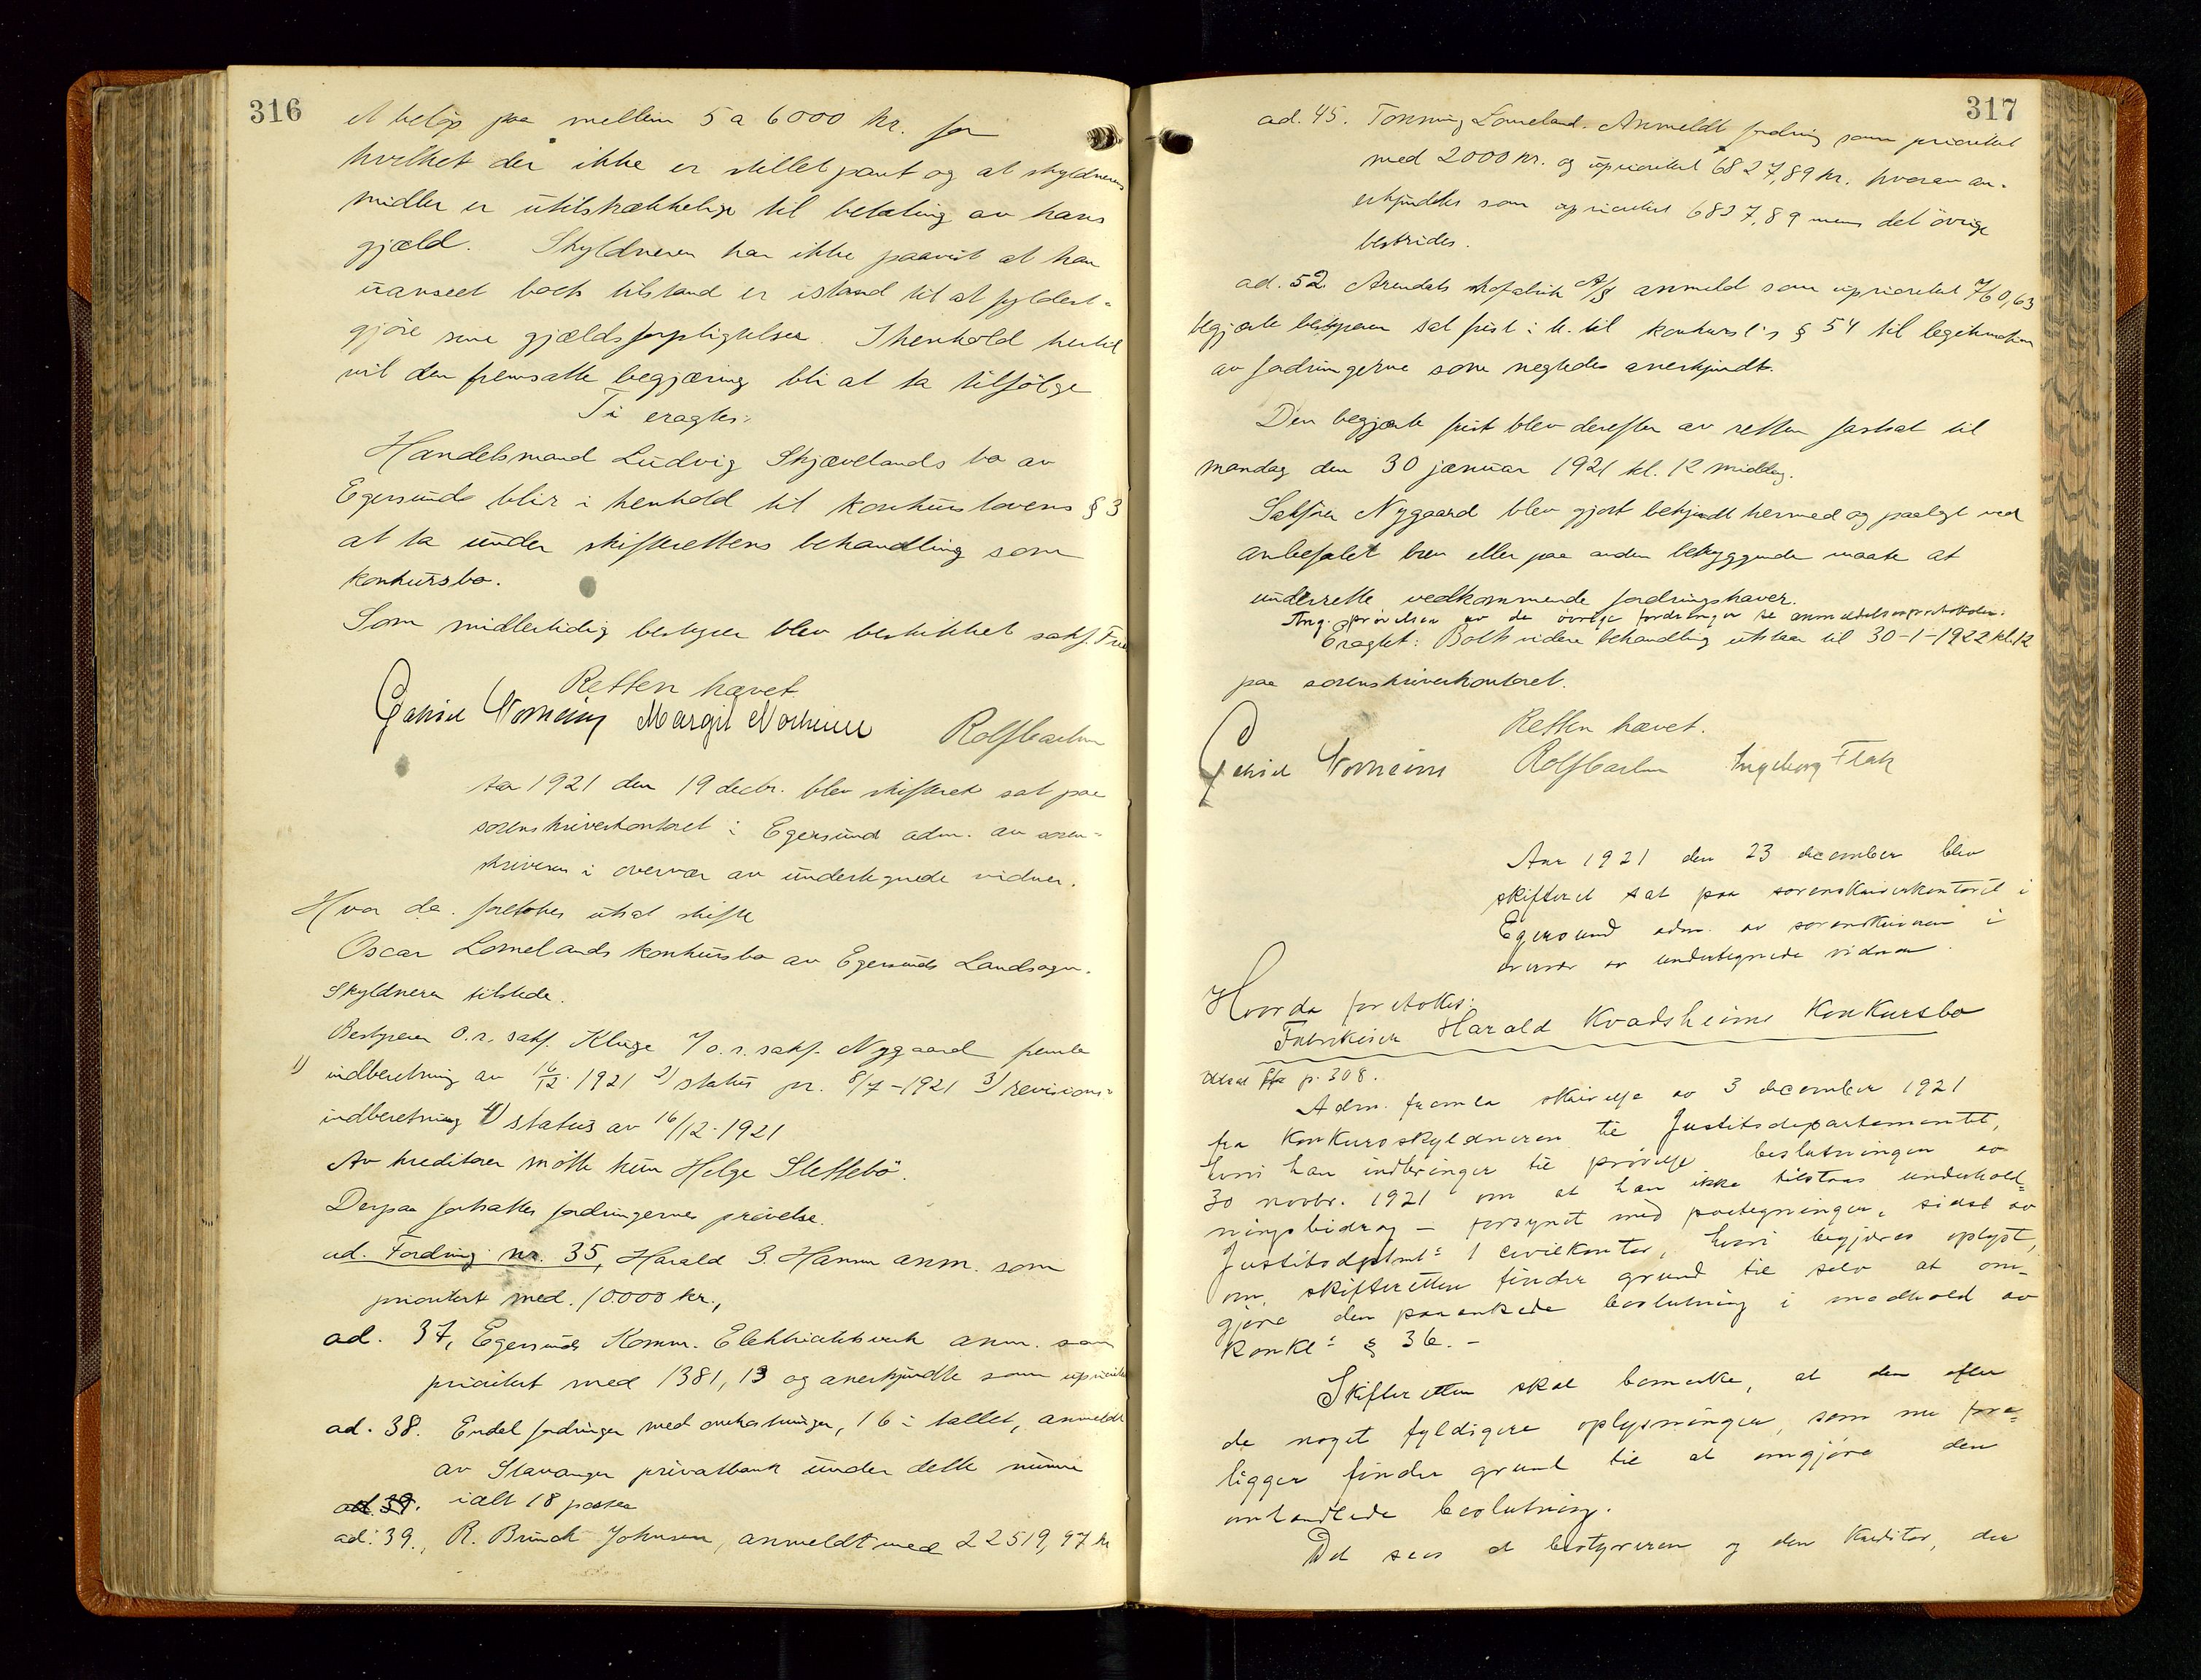 316
et beløp paa mellem 5 a 6000 kr. for
hvilket der ikke er stillet pant og at skyldnerens
midler er utilstrækkelige til betaling av hans
gjæld. Skyldneren har ikke paavist at han
uanseet boets tilstand er istand til at fyldest-
gjøre sine gjældsforpligtelser. I henhold hertil
vil den fremsatte begjæring bli at ta tilfølge
Ti eragtes:
Handelsmand Ludvig Skjævelands bo av
Egersund blir i henhold til konkurslovens § 3
at ta under skifterettens behandling som
konkursbo.
Som midlertidig bestyrer blev beskikket sakf.
Retten hævet.
Margit
Aar 1921 den 19 decbr. blev skifteret sat paa
sorenskriverkontoret i Egersund adm. av soren-
skriveren i overvær av undertegnede vidner.
Hvor da foretokes utsat skifte
Oscar Lomelands konkursbo av Egersunds Landsogn.
Skyldneren tilstede.
Bestyreren o.r. sakf. Kluge v/ o.r. sakf. Nygaard fremla
1) indberetning av 16/12 1921 2) status pr. 8/7-1921 3) revisions-
indberetning 4) status av 16/12-1921
Av kreditorer møtte kun Helge Slettebö.
Derpaa fortsattes fordringernes prøvelse.
ad. Fordring nr. 35, Harald S. Hamm anm. som
prioritert med 10.000 kr.,
ad. 37, Egersunds Komm. Elektricitetsverk anm. som
prioritert med 1381,13 og anerkjendte som uprioritert
ad. 38. Endel fordringer med omkostninger, 16 i tallet, anmeldt
av Stavanger privatbank under dette numer
ad. 39. ialt 18 poster
ad. 39., R. Bruch Johnsen, anmeldt med 22519,97 kr
317
ad. 45. Tønning Lomeland. Anmeldt fordring som prioritert
med 2000 kr. og uprioritert 6827,89 kr. hvorav an-
erkjendtes som uprioritert 6827,89 mens det övrige
bestrides.
ad. 52. Arendals skofabrik A/S anmeld som uprioritert 760,63
begjærte bestyreren sat frist i h. til konkursl's § 54 til legitimation
av fordringerne som negtedes anerkjendt.
Den begjærte frist blev derefter av retten fastsat til
mandag den 30 januar 1921 kl. 12 middag.
Sakfører Nygaard blev gjort bekjendt hermed og paalagt ved
anbefalet brev eller paa anden betryggende maate at
underrette vedkommende fordringshaver.
Ang. prøvelsen av de øvrige fordringer se anmeldelsesprotokollen.
Eragtet: Boets videre behandling utstaar til 30-1-1922 kl. 12
paa sorenskriverkontoret.
Retten hævet.
Ingeborg
Aar 1921 den 23 december blev
skifteret sat paa sorenskriverkontoret i
Egersund adm. av sorenskriveren i
overvær av undertegnede vidner.
Hvorda foretokes:
Fabrikeier Harald Kvadsheims Konkursbo
Utsat fra p. 308.
Adm. fremla skrivelse av 3 december 1921
fra konkursskyldneren til Justitsdepartementet,
hvori han indbringer til prøvelse beslutningen av
30 novbr. 1921 om at han ikke tilstaas underhold-
ningsbidrag - forsynet med paategninger, sidst av
Justitsdptmt's 1 civilkontor, hvori begjæres oplyst,
om skifteretten finder grund til selv at om-
gjøre den paaankede beslutning i medhold av
konkl's § 36. -
Skifteretten skal bemerke, at den efter
de noget fyldigere oplysninger, som nu fore-
ligger finder grund til at omgjøre den
omhandlede beslutning.
Det sees at bestyreren og den kreditor, der